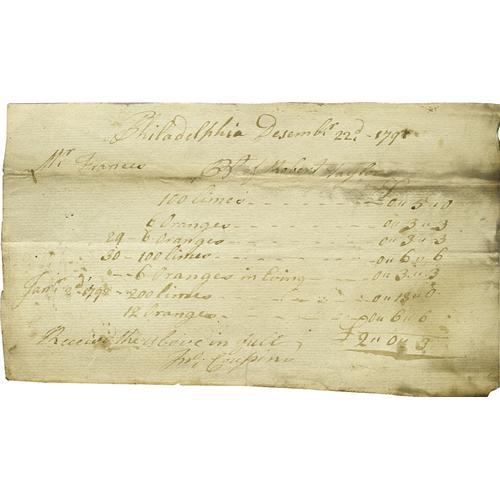 Philadelphia Desembr 22d - 179
Mr Frances Bt of Robert Taylor
100 limes - - - - 0 „ 5 „ 0
6 Oranges - - - - 0 „ 3 „ 3
29 6 Oranges - - - - 0 „ 3 „ 3
30 - 100 limes - - - - 0 „ 6 „ 6
6 Oranges in - - 0 „ 3 „ 3
Jany 2d 179 - 200 limes - - - 0 „ „ 0
12 Oranges - - - - 0 „ 6 „ 6
Receivd the above in full £ 2 „ 0 „ 3